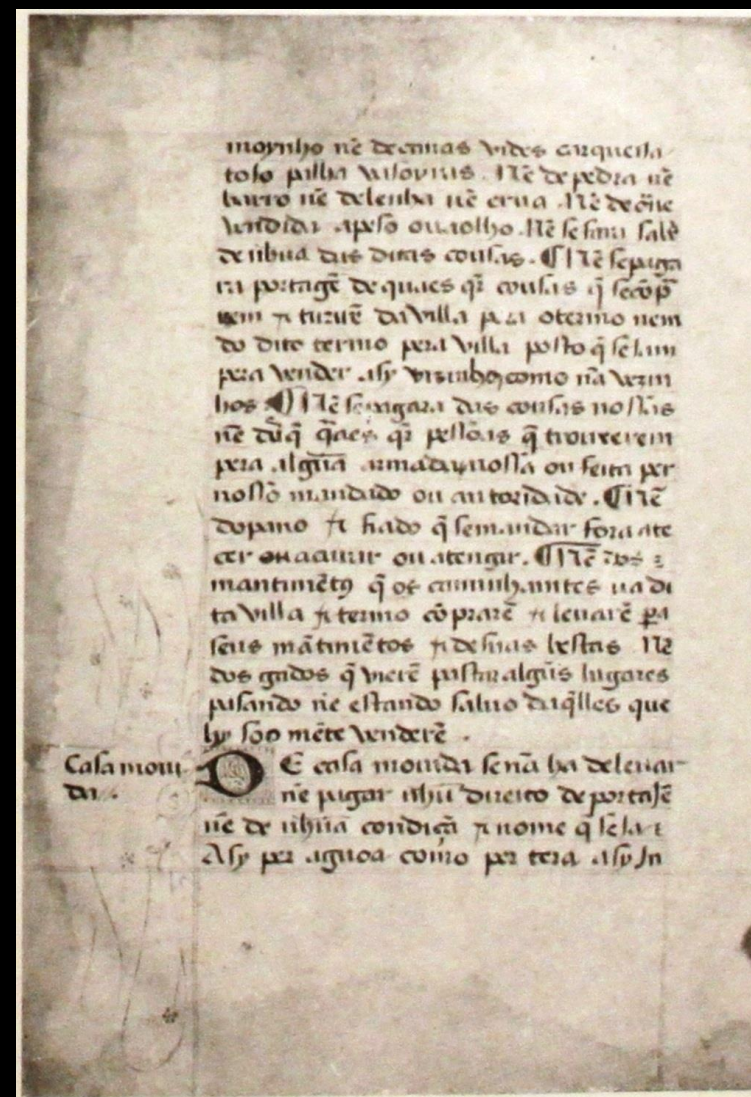 moynho nẽ de canas vides carqueisa
toJo palha vasoyras. Nẽ de pedra nẽ
barro nẽ de lenha nẽ erua. Nẽ de carne
vendida a peso ou a olho. Nẽ se fara saã
de nhũa das ditas cousas. ¶ Nẽ se paga
ra portagẽ de quaes qr̃ cousas q̃ se cõp̃
rem ⁊ tirarẽ da villa pera o termo nem
do dito termo pera villa posto q̃ seJam
pera vender asy vizinhos como nã vezin
hos ¶ Nẽ se pagara das cousas nossas
nẽ das q̃ quaes qr̃ pessoas q̃ trouxerem
pera algũa armada nossa ou feita per
nosso mandado ou autoridade. ¶ Nẽ
do pano ⁊ fiado q̃ se mandar fora a te
cer ou a curar ou a tengir. ¶ Nẽ dos
mantimẽtos q̃ os caminhantes na di
ta villa ⁊ termo cõprarẽ ⁊ levarẽ pa
seus mãtimẽtos ⁊ de suas bestas. Nẽ
dos gados q̃ vierẽ pastar algũs lugares
pasando nẽ estando salvo daq̃lles que
hy soo mẽte venderẽ.
Casa movi
da.
DE casa movida se nã ha de levar
nẽ pagar nhũ direito de portaJẽ
nẽ de nhũa condiçã ⁊ nome q̃ seJa
Asy per agoa como per tera asy Jn